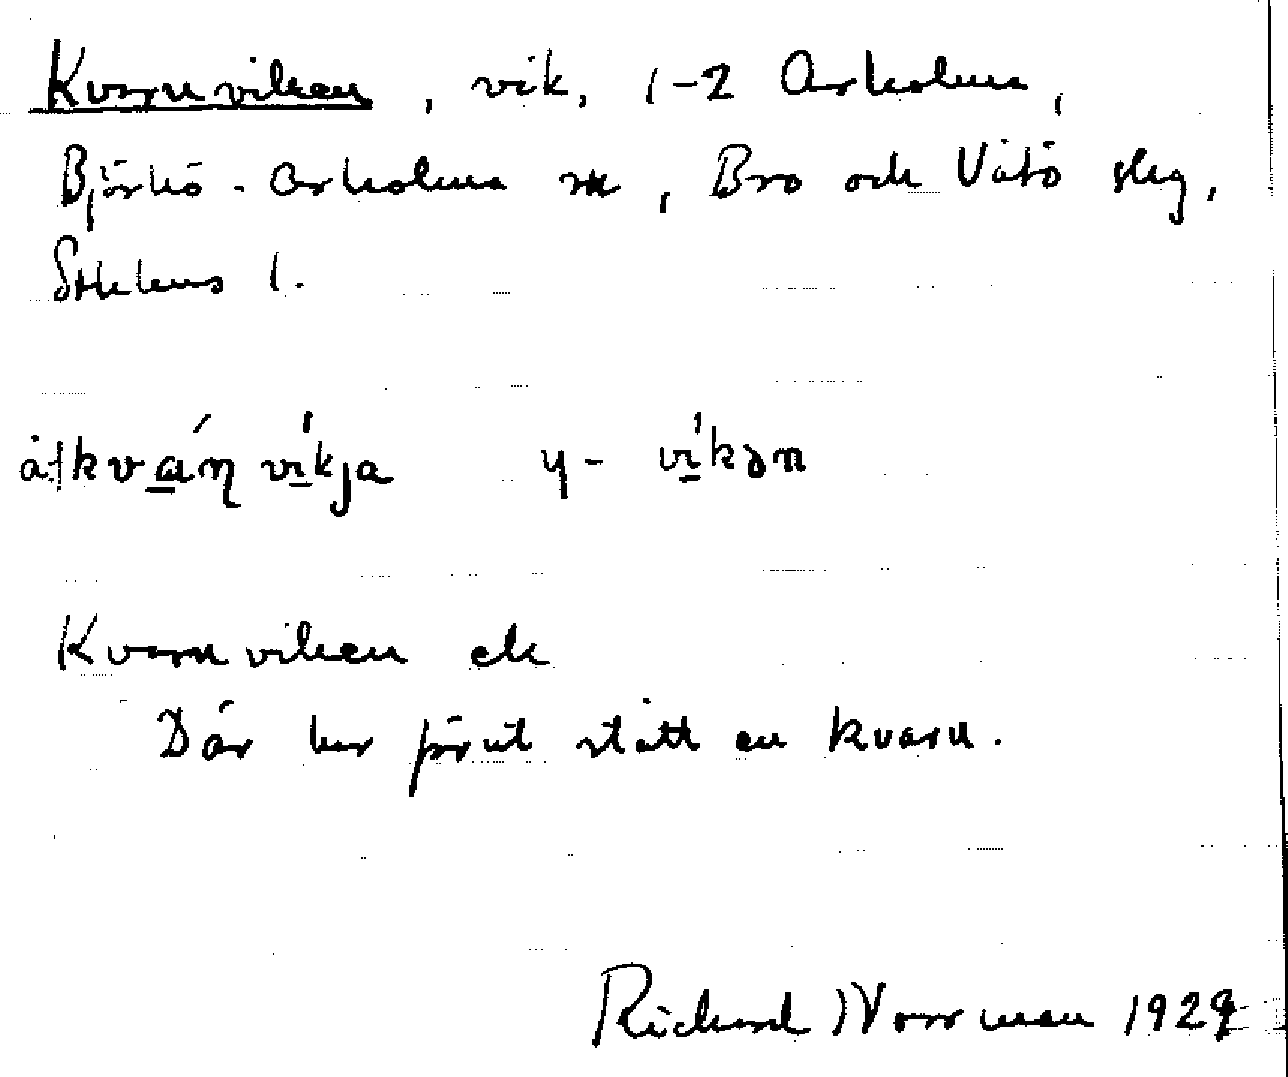 Kvarnviken, vik, 1-2 Arholma,
Björkö-Arholma sn, Bro och Vätö slg,
Sthlms l.
kvánvíkja y- víkən
Kvarnviken ek
Där har förut stått en kvarn.
Richard Norrman 1929